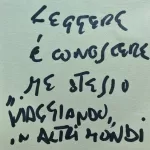 LEGGERE
È CONOSCERE
ME STESSO
"VIAGGIANDO"
IN ALTRI MONDI